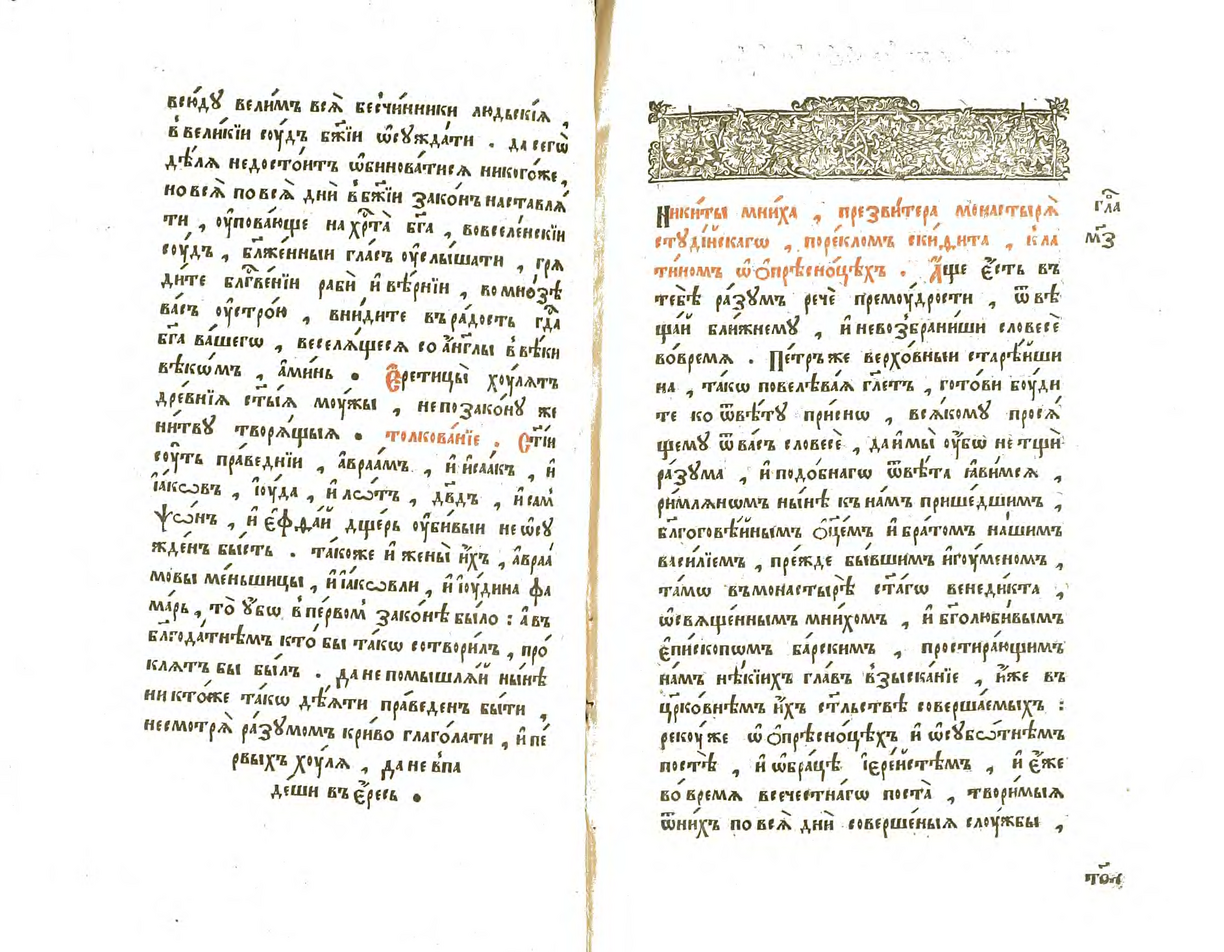 всю́дꙋ вели́мъ всѧ̀ бесчи́нники людьскі́ѧ ,
в҆ вели́кїи сѹ́дъ бж҃їи ѡ҆сꙋжда́ти . да сегѡ̀
дѣ́лѧ недосто́итъ ѡ҆бинова́тисѧ никого́же ,
но всѧ̀ по всѧ̀ дни̑ в҆ бж҃їи зако́нъ наставлѧ́
ти , ѹ҆пова́юще на хрⷭ҇та̀ бг҃а , во вселе́нскїи
сѹ́дъ , бл҃же́нныи гла́съ ѹ҆слы́шати , грѧ
ди́те блгⷭ҇ве́нїи раби̑ и҆ вѣ́рнїи , во мно́зѣ
ва́съ ѹ҆стро́ю , вни́дите въ ра́дость гдⷭ҇а
бг҃а ва́шегѡ , веселѧ́щесѧ со а҆́нг҃лы в҆ вѣ́ки
вѣкѡ́мъ , а҆ми́нь . Є҆ретицы̀ хѹ́лѧтъ
дре́внїѧ ст҃ы́ѧ мѹ́жы , не по зако́нꙋ же
ни́твꙋ творѧ́щыѧ . толкова́нїе . Ст҃і́и
сѹ́ть пра́веднїи , а҆враа́мъ , и҆ и҆саа́къ , и҆
і҆а́кѡвъ , і҆ю́да , и҆ лѡ́тъ , дв҃дъ , и҆ сам
ѱѡ́нъ , и҆ є҆ффа́й дще́рь ѹ҆би́выи не ѡ҆сꙋ
жде́нъ бы́сть . та́коже и҆ жены̀ и҆́хъ , а҆враа́
мовы ме́ньшицы , и҆ і҆а́кѡвли , и҆ і҆ю́дина фа
ма́рь , то̀ ꙋ҆́бѡ в҆ пе́рвом̾ зако́нѣ бы́ло : а҆ въ
бл҃года́тнѣмъ кто́ бы та́кѡ сотвори́лъ , про́
клѧтъ бы бы́лъ . да не помышлѧ́й ны́нѣ
никто́же та́кѡ дѣ́ѧти пра́веденъ бы́ти ,
несмотрѧ̀ ра́зꙋмомъ кри́во глаго́лати , и҆ пе́
рвыхъ хѹ́лѧ , да не в҆па
деши въ є҆́ресь .
гла̑
м҃з
Ники́ты мни́ха , презви́тера монастырѧ̀
стꙋді́йскагѡ , пореклом̀ скиди́та , к҆ ла
ти́номъ ѡ҆ ѻ҆прѣсно́цѣхъ . А҆́ще є҆́сть въ
тебѣ̀ ра́зꙋмъ рече̑ премѹ́дрости , ѿвѣ
ща́й бли́жнемꙋ , и҆ не возбрани́ши словесѐ
во́ времѧ . Пе́тръ же верхо́вныи старѣ́йши
на , та́кѡ повелѣва́ѧ гл҃етъ , гото́ви бѹ́ди
те ко ѿвѣ́тꙋ при́снѡ , всѧ́комꙋ просѧ́
щемꙋ ѿ ва́съ словесѐ , да и҆ мы̀ ѹ҆́бѡ не тщѝ
ра́зꙋма , и҆ подо́бнагѡ ѿвѣ́та ꙗ҆ви́мсѧ ,
ри́млѧнѡмъ ны́нѣ къ на́мъ прише́дшимъ ,
бл҃гоговѣ́йнымъ ѻ҆ц҃е́мъ и҆ бра́томъ на́шимъ
васи́лїемъ , пре́жде бы́вшимъ и҆гѹ́меномъ ,
та́мѡ въ монастырѣ̀ ст҃а́гѡ венеди́кта ,
ѡ҆свѧще́ннымъ мни́хомъ , и҆ бг҃олюби́вымъ
є҆пи́скопѡмъ ба́рскимъ , простира́ющимъ
на́мъ нѣ́кїихъ гла́въ в҆зыска́нїе , и҆́же въ
цр҃ко́внѣмъ и҆́хъ ст҃льствѣ соверша́емыхъ :
рекѹ́ же ѡ҆ ѻ҆прѣсно́цѣхъ и҆ ѡ҆ сꙋбѡ́тнѣмъ
постѣ̀ , и҆ ѡ҆ бра́цѣ і҆ере́йстѣмъ , и҆ є҆́же
во́ времѧ всечестна́гѡ поста̀ , твори́мыѧ
ѿ ни́хъ по всѧ̀ дни̑ соверше́ныѧ слѹ́жбы ,